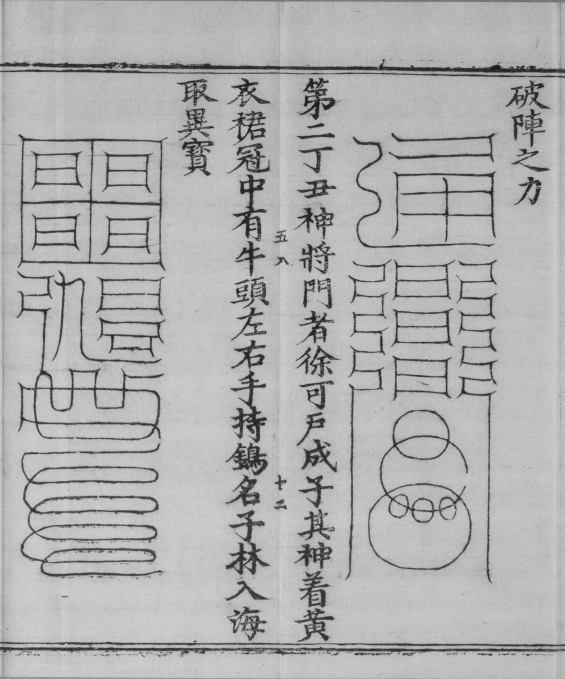 破陣之力
第二丁丑神將門者徐可戶成子其神着黃
五八
衣裙冠中有牛頭左右手持鷄名子林入海
十二
取異寶